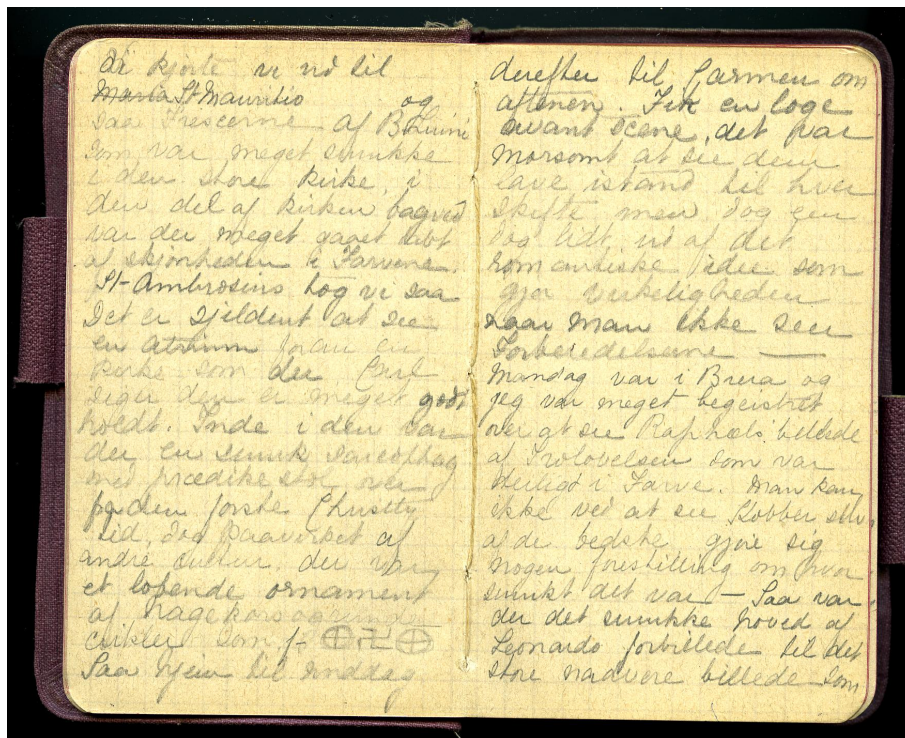 Så kjørte vi ud til
Maria St Mauritio og
saa Frescerne af B Luini
som var meget smukke
i den store kirke, i
den del af kirken bagved
var der meget gaaet tabt
af skjønheden i Farvene.
St Ambrosius tog vi saa
Det er sjeldent at see
en atrium foran en
kirke som der Carl
siger den er meget godt
holdt. Inde i den var
der en smuk Sarcophag
med prædike stol over
fra den første Christly
tid, dog paavirket af
andre cultur. der var
et løpende ornament
af hagekors og
cirkler som f. ⊕卍⊕
Saa hjem til middag
derefter til Carmen om
aftenen. Fik en loge
avant scene, det var
morsomt at see dem
lave istand til hver
skifte men dog gen
dog lidt ud af det
romantiske idee som
gjør virkeligheden
naar man ikke seer
Forberedelserne —
Mandag var i Brera og
jeg var meget begeistret
over at see Raphaels billede
af Trolovelsen som var
deilig i Farve. Man kan
ikke ved at see Kobber stik
af de bedste gjøre sig
nogen forestilling om hvor
smukt det var — Saa var
der det smukke hoved af
Leonardo forbillede til det
store nadvere billede som